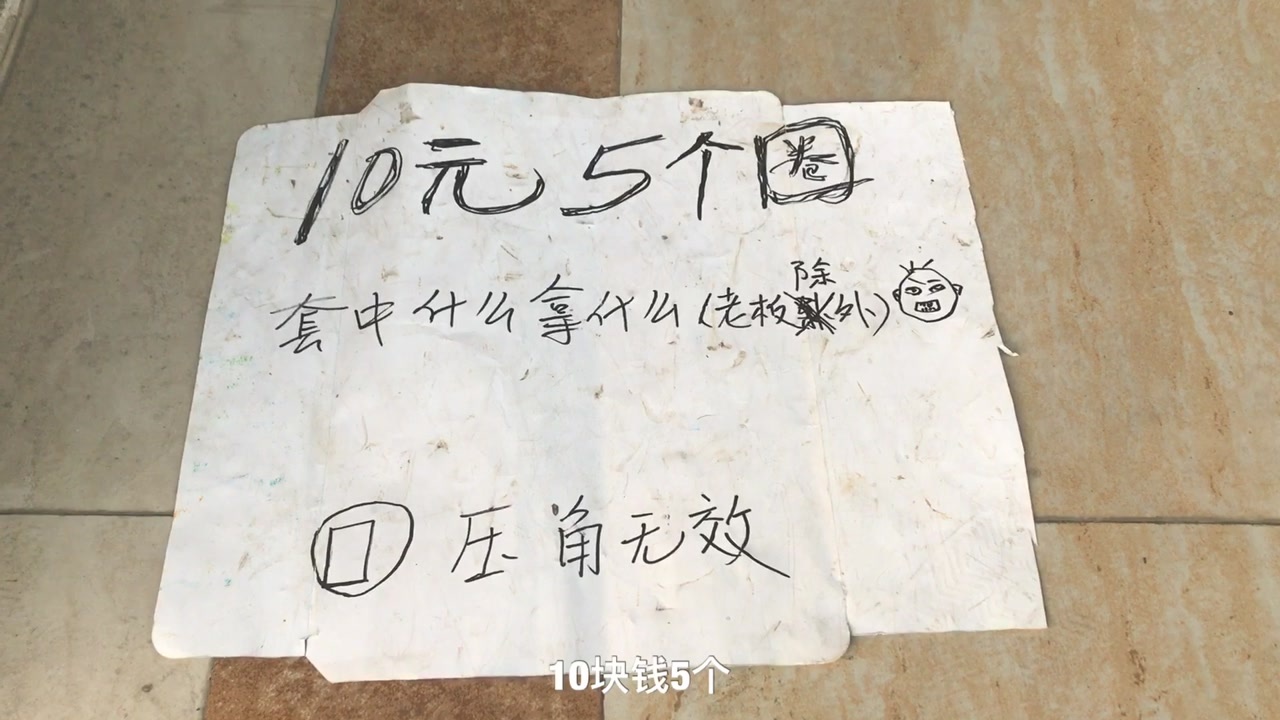 10元5个圈
套中什么拿什么(老板除外)
压角无效
10块钱5个